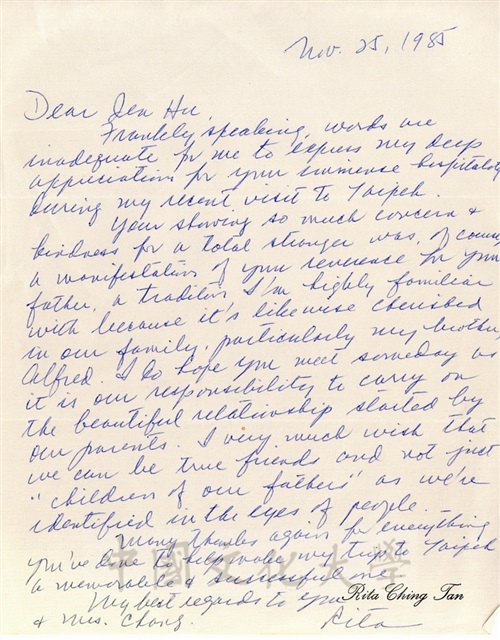 Nov. 25, 1985
Dear Jen Hu,
Frankly speaking, words are
inadequate for me to express my deep
appreciation for your immense hospitality
during my recent visit to Taipeh.
Your showing so much concern &
kindness for a total stranger was, of course,
a manifestation of your reverence for your
father, a tradition I'm highly familiar
with because it's likewise cherished
in our family, particularly my brother,
Alfred. I do hope you meet someday as
it is our responsibility to carry on
the beautiful relationship started by
our parents. I very much wish that
we can be true friends and not just
"children of our fathers" as we're
identified in the eyes of people.
Many thanks again for everything
you've done to help make my trip to Taipeh
a memorable & successful one.
中國文化大學
Rita Ching Tan
My best regards to your
& Mrs. Chang.
Rita